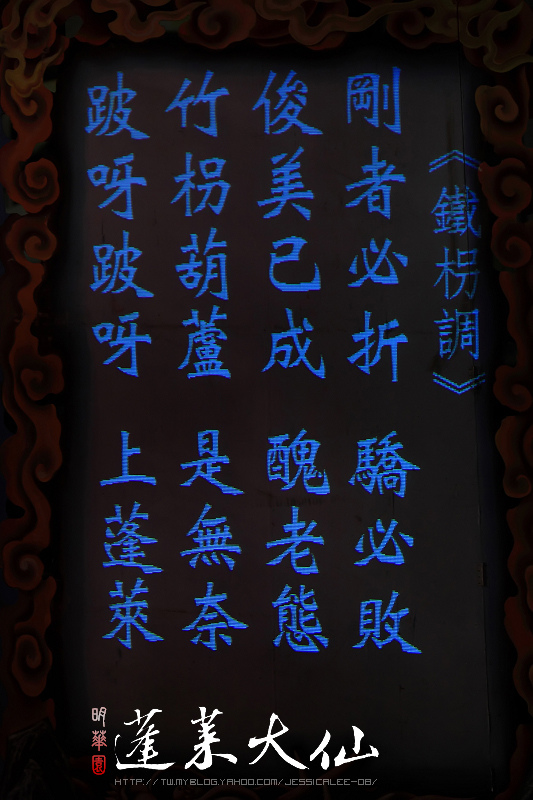 《鐵枴調》
剛者必折 驕必敗
俊美已成 醜老態
竹枴葫蘆 是無奈
跛呀跛呀 上蓬萊
明華園
蓬萊大仙
HTTP://TW.MYBLOG.YAHOO.COM/JESSICALEE-08/